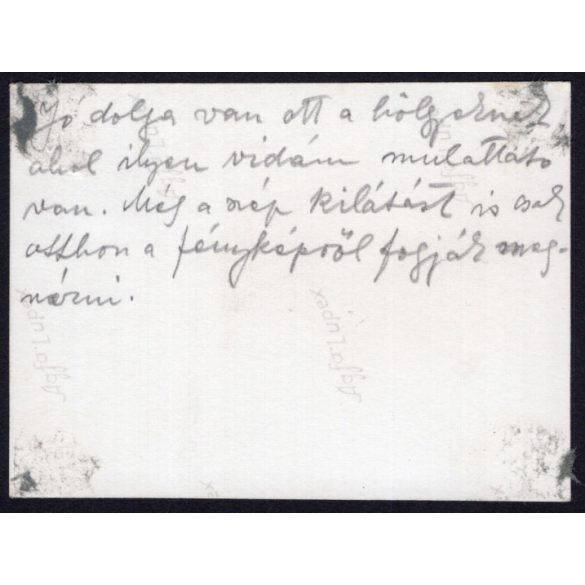 Jó dolga van ott a hölgyeknek,
ahol ilyen vidám mulattató
van. Még a szép kilátást is csak
otthon a fényképről fogják meg-
nézni.
Agfa Lupex
Agfa Lupex